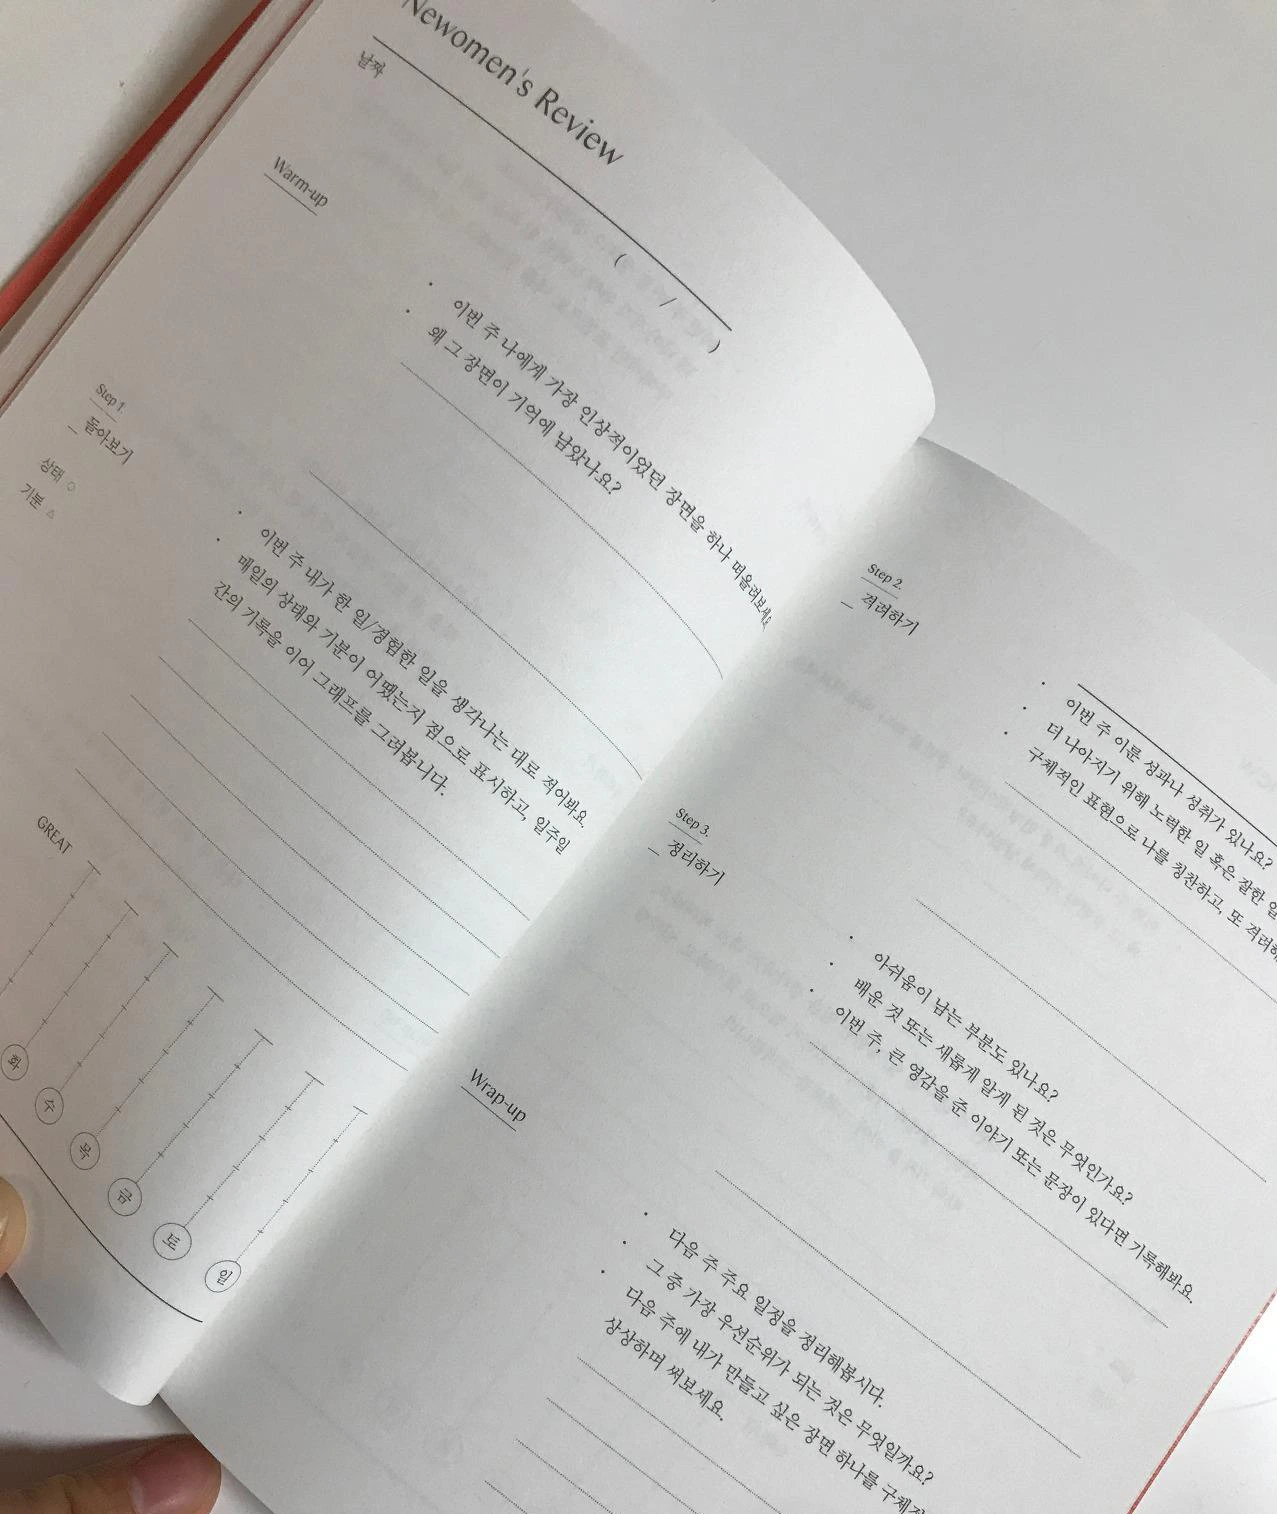 Newomen's Review
날짜
( / )
Warm-up
• 이번 주 나에게 가장 인상적이었던 장면을 하나 떠올려보세요.
• 왜 그 장면이 기억에 남았나요?
Step 1.
_ 돌아보기
상태 ○
기분 △
• 이번 주 내가 한 일/경험한 일을 생각나는 대로 적어봐요.
• 매일의 상태와 기분이 어땠는지 점으로 표시하고, 일주일
간의 기록을 이어 그래프를 그려봅니다.
GREAT
화
수
목
금
토
일
Step 2.
_ 격려하기
• 이번 주 이룬 성과나 성취가 있나요?
• 더 나아지기 위해 노력한 일 혹은 잘한 일
• 구체적인 표현으로 나를 칭찬하고, 또 격려해
Step 3.
_ 정리하기
• 아쉬움이 남는 부분도 있나요?
• 배운 것 또는 새롭게 알게 된 것은 무엇인가요?
• 이번 주, 큰 영감을 준 이야기 또는 문장이 있다면 기록해봐요.
Wrap-up
• 다음 주 주요 일정을 정리해봅시다.
• 그 중 가장 우선순위가 되는 것은 무엇일까요?
• 다음 주에 내가 만들고 싶은 장면 하나를
상상하며 써보세요.